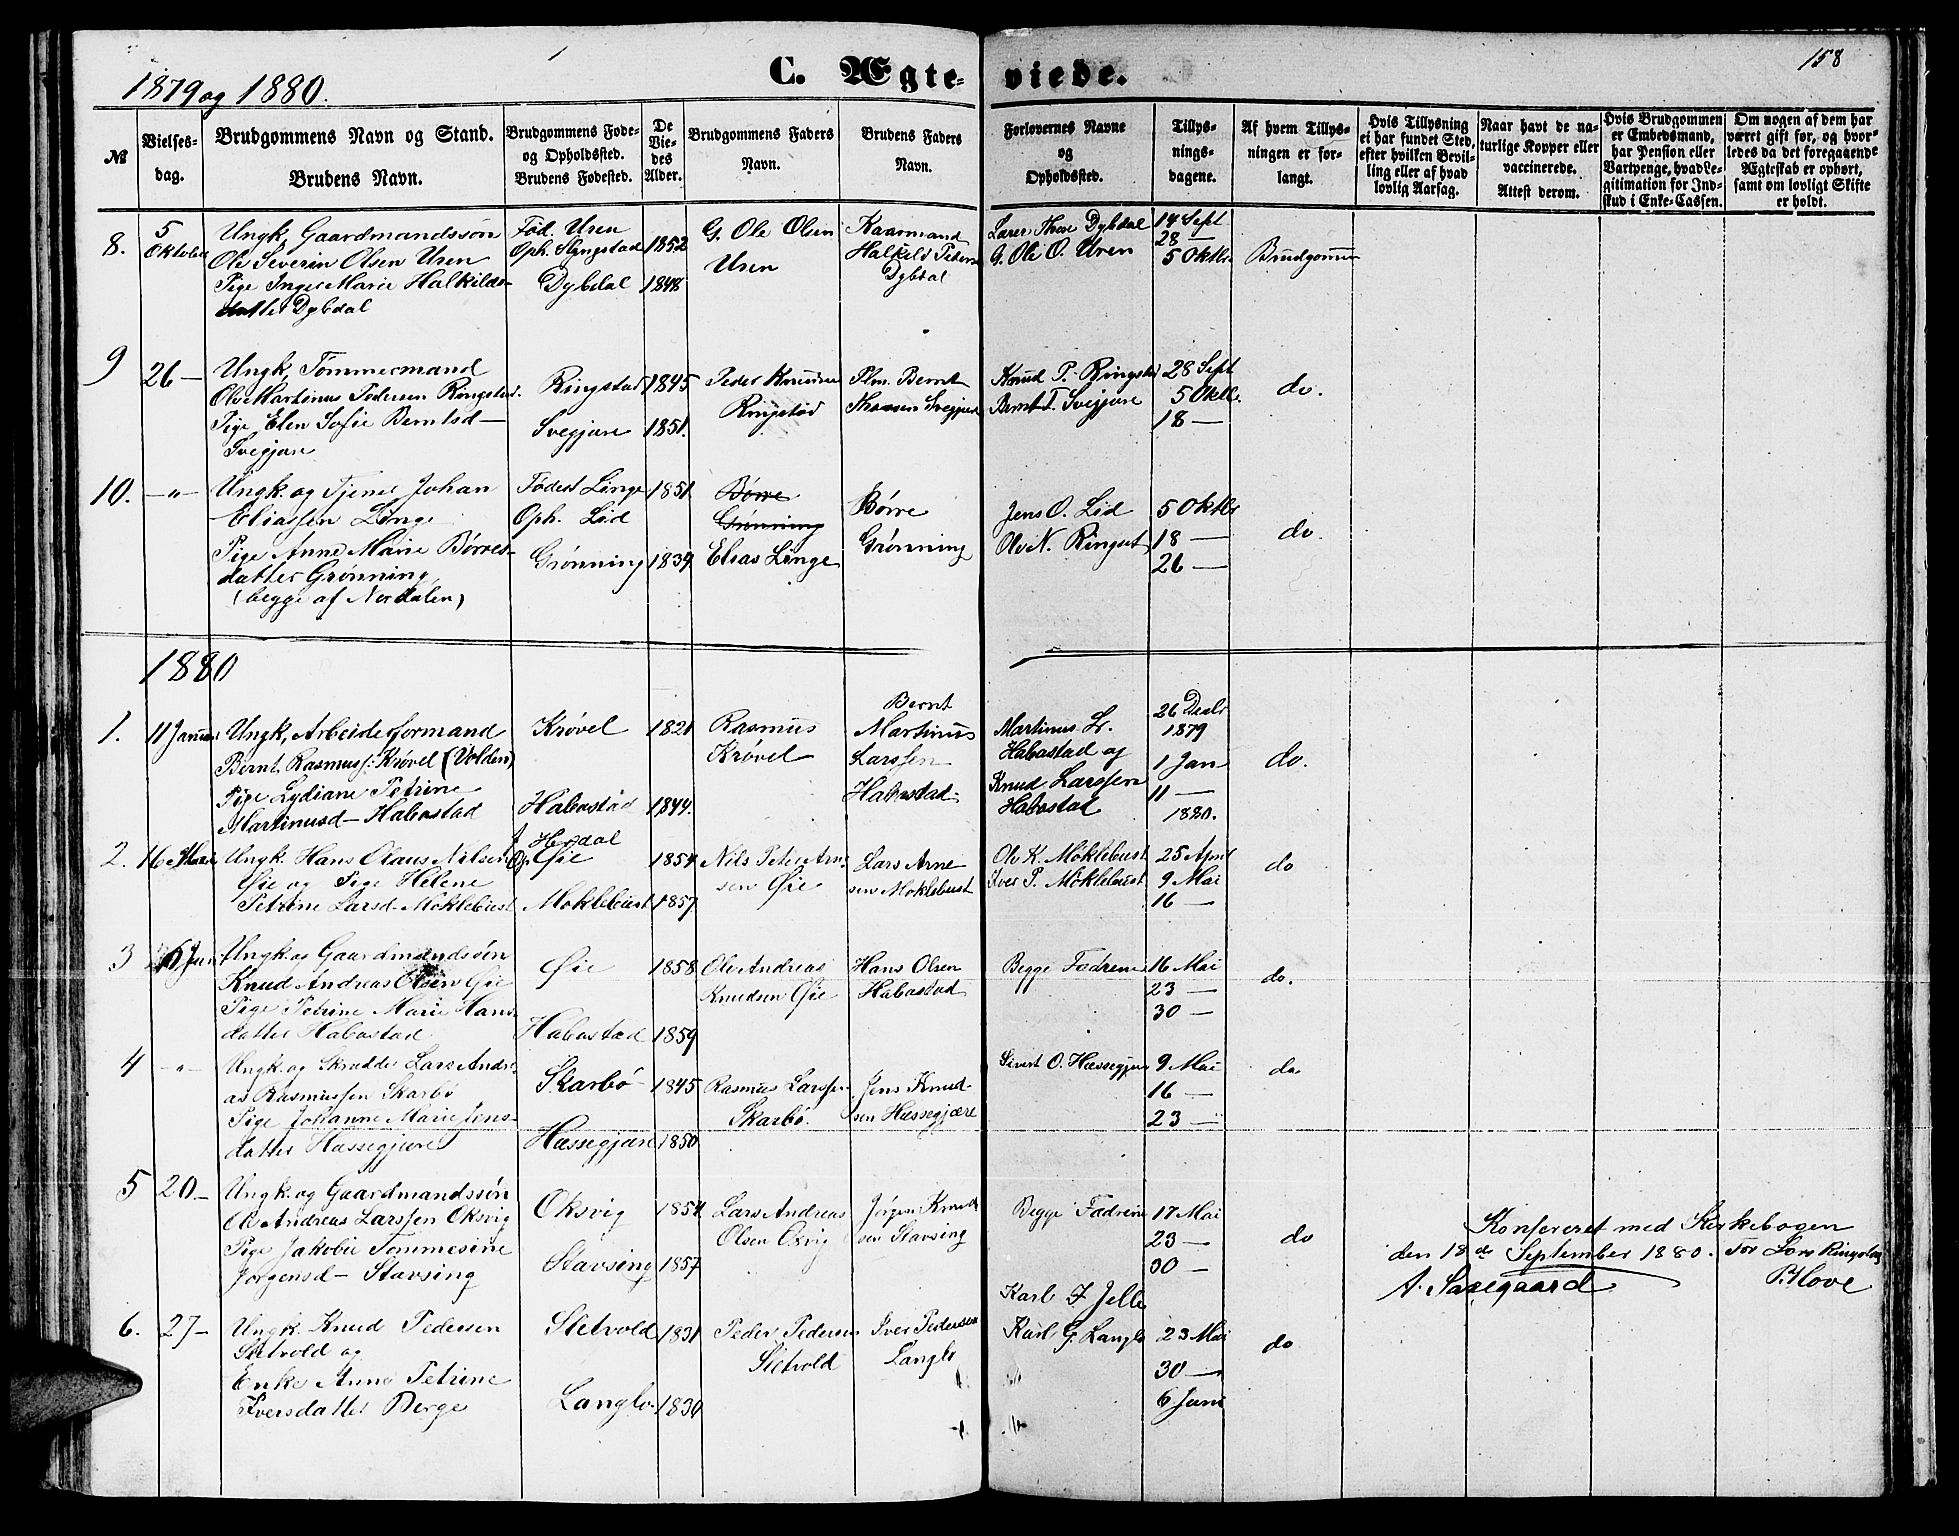 1879 og 1880.
C. Ægte- viede.
158
№
Vielses-
dag.
Brudgommens Navn og Stand.
Brudens Navn.
Brudgommens Føde-
og Opholdssted.
Brudens Fødested.
De
Vie-
des
Alder.
Brudgommens Faders
Navn.
Brudens Faders
Navn.
Forlovernes Navne
og
Opholdssted.
Tillys-
nings-
dagene.
Af hvem Tillys-
ningen er for-
langt.
Hvis Tillysning
ei har fundet Sted,
efter hvilken Bevil-
ling eller af hvad
lovlig Aarsag.
Naar havt de na-
turlige Kopper eller
vaccinerede.
Attest derom.
Hvis Brudgommen
er Embedsmand,
har Pension eller
Vartpenge, hvad Le-
gitimation for Ind-
skud i Enke-Cassen.
Om nogen af dem har
været gift før, og hvor-
ledes da det foregaaende
Ægteskab er ophørt,
samt om lovligt Skifte
er holdt.
8.
5
Oktober
Ungk. Gaardmandssøn
Ole Severin Olsen Uren
Pige Inger Marie Halkilds-
datter Dybdal
Fød. Uren
Oph. Slyngstad
Dybdal
1852
1848
G. Ole Olsen
Uren
Kaarmand
Halkild Peders
Dybdal
Lærer Thore Dybdal
G. Ole O. Uren
14 Sept
28 —
5 Oktbr.
Brudgommen
9
26 —
Ungk. Tømmermand
Ole Martinus Pedersen Ringstad.
Pige Elen Sofie Berntsd—
Svegjære
Ringstad
Svegjære
1845
1851.
Peder Knudsen
Ringstad
Plm. Bernt
Thoresen Svegjære
Knud P. Ringstad
Bernt T. Svegjære
28 Sept
5 Oktb.
18 —
do.
10.
—"—
Ungk. og Tjener Johan
Eliassen Linge
Pige Anne Marie Børres-
datter Grønning
(begge af Nordalen)
Fødest Linge
Oph. Lid
Grønning
1851
1839
Børre
Grønning
Elias Linge
Børre
Grønning
Jens O. Lid
Ole N. Ringset
5 Oktbr
18 —
26 —
do.
1880
1.
11 Januar
Ungk, Arbeidsformand
Bernt Rasmuss: Krøvel (Volden)
Pige Lydiane Petrine
Martinusd— Habostad
Krøvel
Habostad
1821
1844.
Rasmus
Krøvel
Bernt
Martinus
Larssen
Habostad
Martinus L.
Habostad og
Knud Larssen
Habostad
26 Decbr
1879
1 Jan
11 —
1880.
do.
2.
16 Mai
Ungk. Hans Olaus Nilsen
Øie og Pige Helene
Petrine Larsd- Moklebust
f Herdal
Op. Øie
Moklebust
1854
1857
Nils Peter Arne
sen Øie
Lars Arne
sen Moklebust
Ole K. Moklebust
Iver P. Moklebust
25 April
9 Mai
16 —
do
3
6 Juni
Ungk. og Gaardmandssøn
Knud Andreas Olsen Øie
Pige Petrine Marie Hans
datter Habostad
Øie
Habostad
1858
1859
Ole Andreas
Knudsen Øie
Hans Olsen
Habostad
Begge Fædrene
16 Mai
23 —
30 —
do.
4
—"—
Ungk. og Skrædder Lars Andre-
as Rasmussen Skarbø
Pige Johanne Marie Jens-
datter Hæssegjære
Skarbø
Hæssegjære
1845
1850
Rasmus Larssen
Skarbø.
Jens Knud-
sen Hæssegjære
Sivert O. Hæssegjære
9 Mai
16 —
23 —
do
5
20 —
Ungk. og Gaardmandssøn
Ole Andreas Larssen Oksvig
Pige Jakobie Tommesine
Jørgensd— Stavsing
Oksvig
Stavsing
1854
1857
Lars Andreas
Olsen Oksvig
Jørgen Knud-
sen Stavsing
Begge Fædrene
17 Mai
23 —
30 —
do
Konfereret med Kirkebogen
den 18de September 1880. For Lars Ringstad
A. Saxegaard
P. Hove
6.
27 —
Ungk. Knud Pedersen
Sletvold og
Enke Anne Petrine
Iversdatter Berge
Sletvold
Langlo.
1831
1830
Peder Pedersen
Sletvold
Iver Pedersen
Langlo
Karl J Jelle
Karl G. Langlo
23 Mai
30 —
6 Juni
do